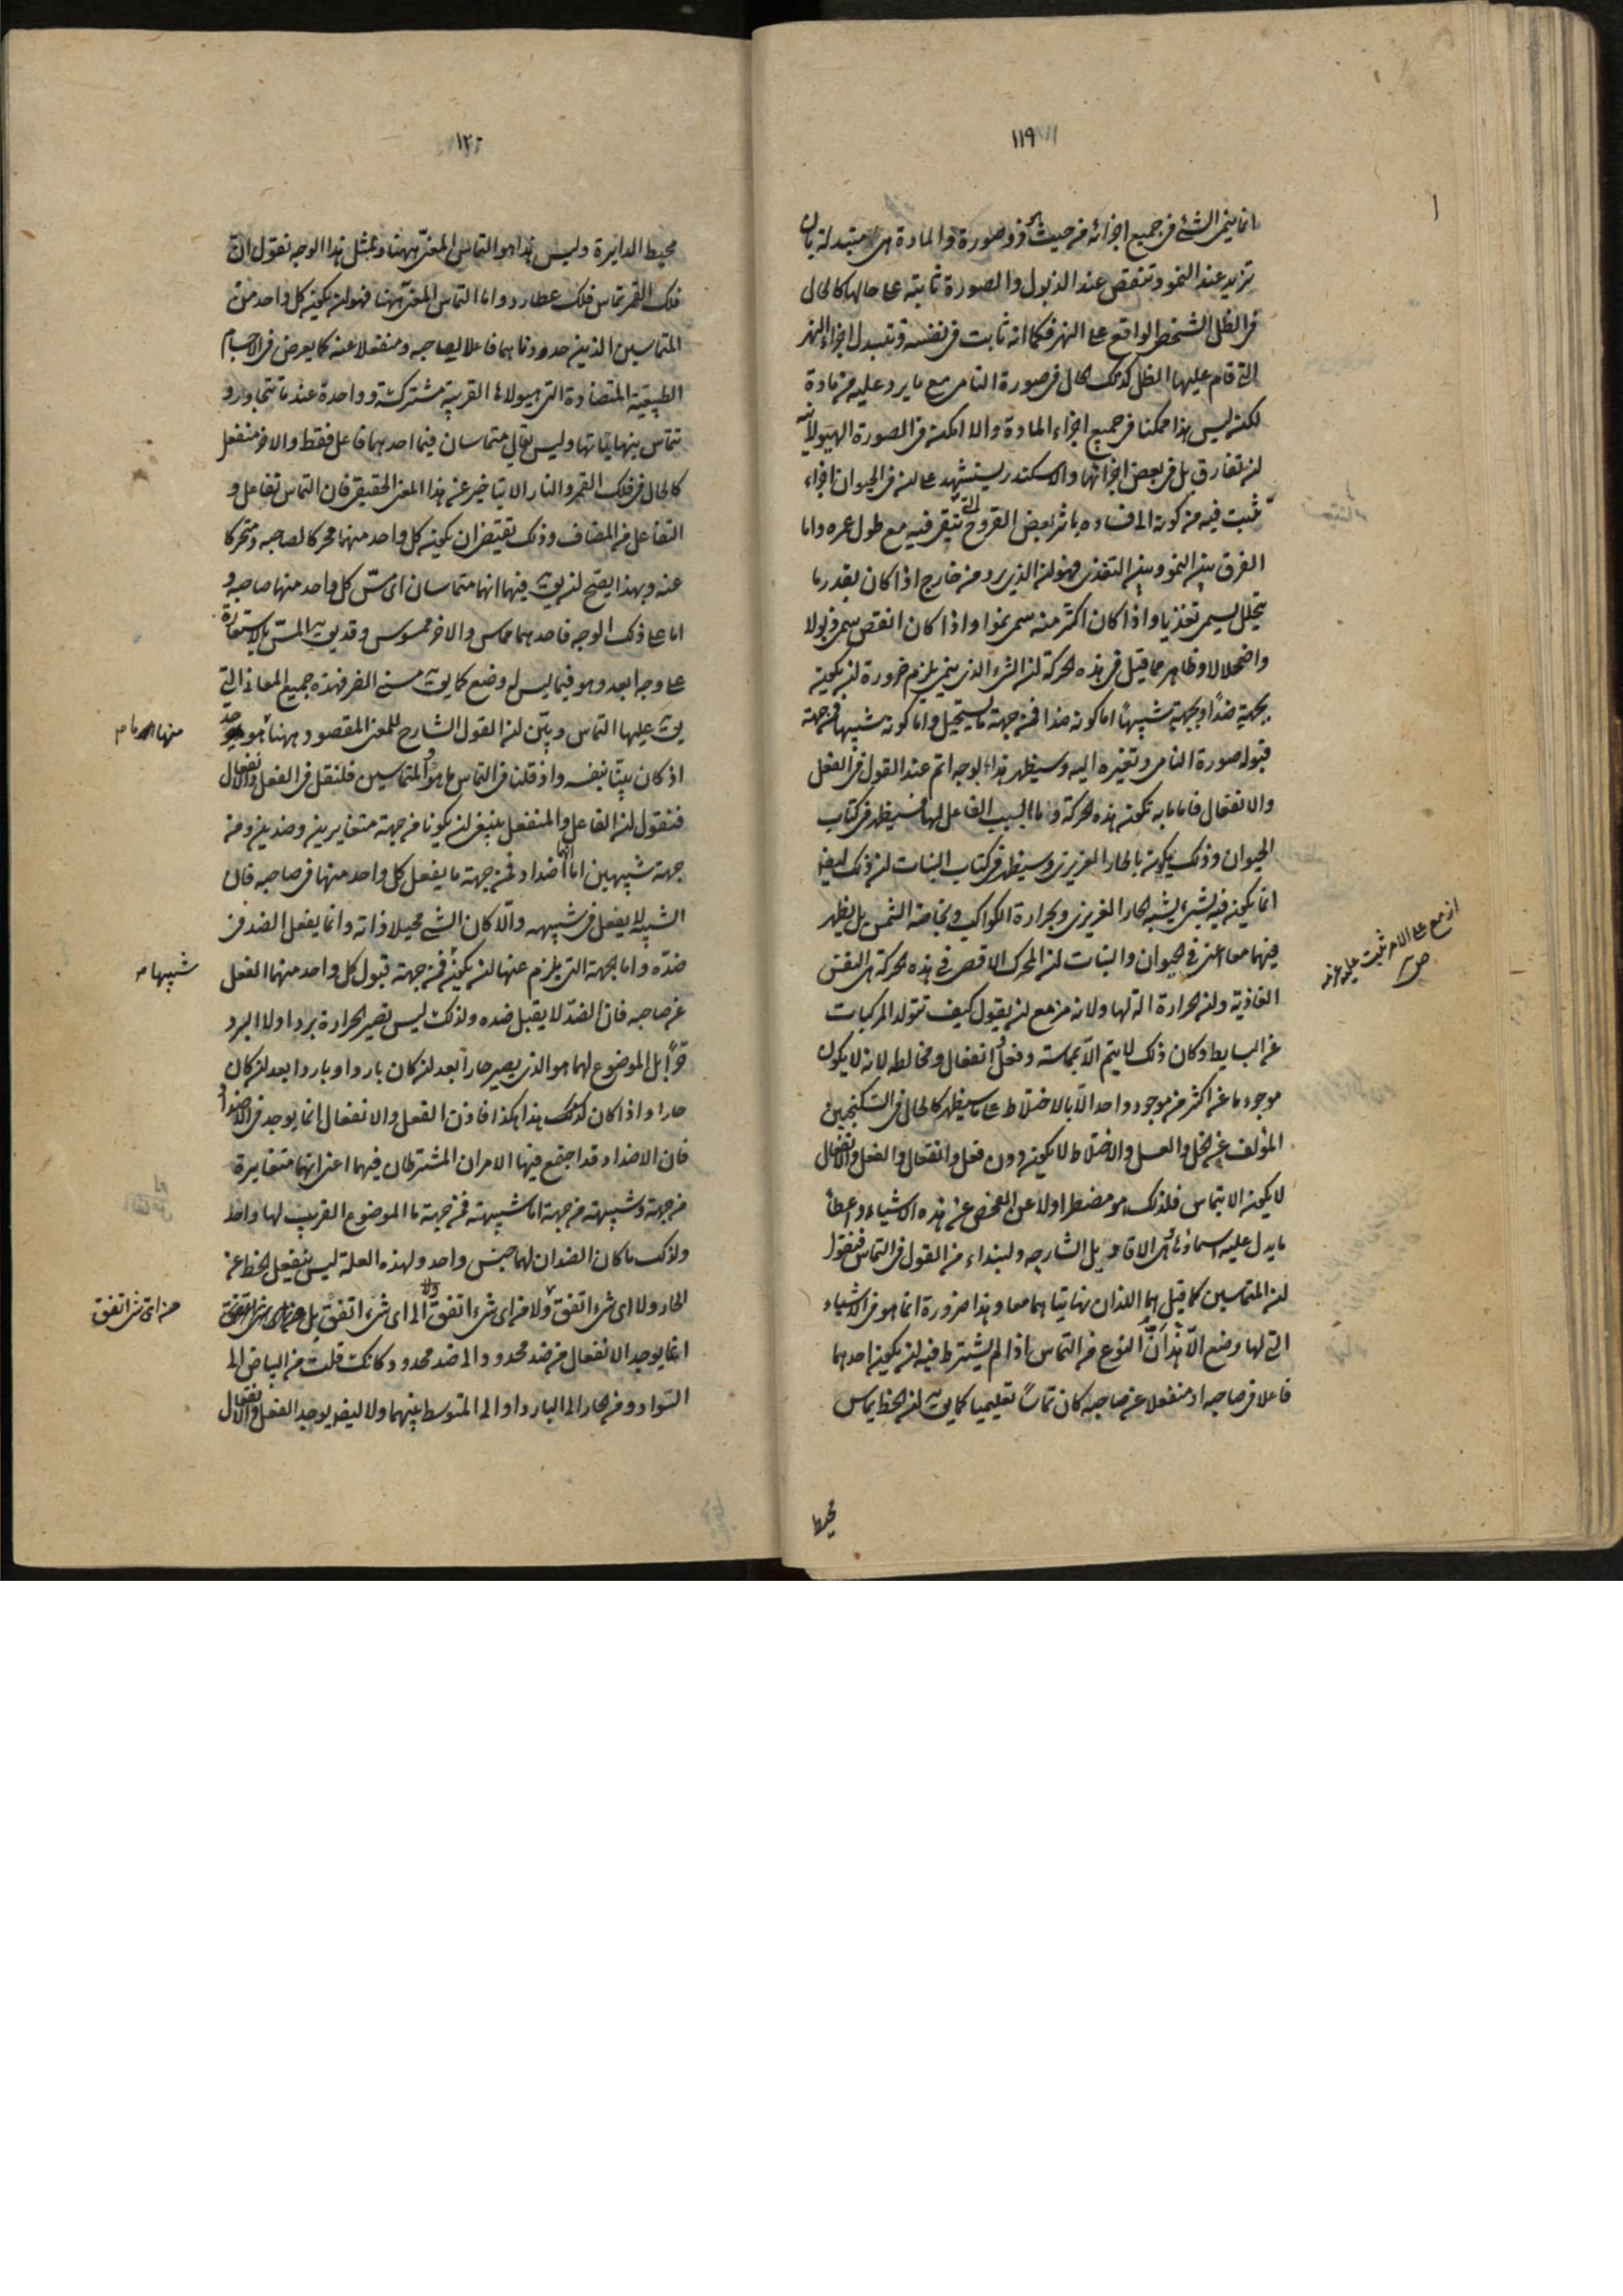 ١١٩
انما ينمى الشئ فى جميع اجزائه من حيث هو ذو صورة والمادة هى متبدلة بان
تزيد عند النمو وتنقص عند الذبول والصورة ثابتة على حالها كالحال
فى الظل الشخص الواقع على النهر فكما انه ثابت فى نفسه وتتبدل اجزاء النهر
التى قام عليها الظل كذلك الحال فى صورة النامى مع ما يرد عليه من مادة
لكنه ليس هذا ممكنا فى جميع اجزاء المادة والا امكنه فى الصورة الهيولانية
ان تفارق بل فى بعض اجزائها والاسكندر يستشهد على ان فى الحيوان اجزاء
ثبت فيه من كونه الى فساده باثر بعض القروح التى تبقى فيه مع طول عمره واما
الفرق بين النمو وبين التغذى فهو ان الذى يرد من خارج اذا كان بقدر ما
يتحلل يسمى تغذيا واذا كان اكثر منه سمى نموا واذا كان انقص سمى ذبولا
واضمحلالا وظاهر مما قيل فى هذه الحركة ان الشئ الذى ينمى يلزم ضرورة ان يكون
بجهة ضدا وبجهة شبيها اما كونه ضدا فمن جهة ما يستحيل واما كونه شبيها فمن جهة
قبوله صورة النامى وتغيره اليه وسيظهر هذا بوجه اتم عند القول فى الفعل
والانفعال فاما ما به تكون هذه الحركة وما السبب الفاعل لها فسيظهر فى كتاب
الحيوان وذلك يكون بالحار الغريزى وسيظهر فى كتاب النبات ان ذلك ايضا
انما يكون فيه بشئ يشبه الحار الغريزى وبحرارة الكواكب وبخاصة الشمس بل يظهر
فيهما معا اعنى فى الحيوان والنبات ان المحرك الاقصى فى هذه الحركة هى النفس
الغاذية وان الحرارة آلة لها ولانه مزمع ان يقول كيف تتولد المركبات
عن البسايط وكان ذلك لا يتم الا بمماسة وفعل وانفعال ومخالطه لانه لا يكون
موجود ما عن اكثر من موجود واحد الا بالاختلاط على ما سيظهر كالحال فى السكنجبين
المؤلف عن الخل والعسل والاختلاط لا يكون دون فعل وانفعال والفعل والانفعال
لا يكون الا بتماس فلذلك هو مضطر اولا عن الفحص عن هذه الاشياء واعطا
ما يدل عليه اسماؤها من الاقاويل الشارحه ولنبداء من القول فى التماس فنقول
ان المتماسين كما قيل هما اللذان نهايتاهما معا وهذا ضرورة انما هو فى الاشياء
التى لها وضع الا ان هذا النوع من التماس اذا لم يشترط فيه ان يكون احدهما
فاعلا فى صاحبه او منفعلا عن صاحبه كان تماسا تعليميا كما يق ان الخط يماس
محيط
١٢٠
محيط الدايرة وليس هذا هو التماس المعنى ههنا وبمثل هذا الوجه نقول ان
فلك القمر تماس فلك عطارد واما التماس المعنى ههنا فهو ان يكون كل واحد من
المتماسين الذين حددناهما فاعلا لصاحبه ومنفعلا عنه كما يعرض فى الاجسام
الطبيعية المتضادة التى هيولاها القريبة مشتركة وواحدة عندما تتجاور و
تتماس بنهاياتها وليس يقال متماسان فيما احدهما فاعل فقط والاخر منفعل
كالحال فى فلك القمر والنار الا بتاخير عن هذا المعنى الحقيقى فان التماس تفاعل و
التفاعل من المضاف وذلك يقتضى ان يكون كل واحد منهما محركا لصاحبه ومتحركا
عنه وبهذا يصح ان يق فيهما انهما متماسان اى مس كل واحد منهما صاحبه و
اما على ذلك الوجه فاحدهما مماس والاخر ممسوس وقد يق المس بالاستعارة
على وجه ابعد وهو فيما ليس له وضع كما يق مسنى الضر فهذه جميع المعانى التى
يق عليها التماس وبين ان القول الشارح للمعنى المقصود ههنا موجود
اذ كان بينا بنفسه واذ قلنا فى التماس ما هو والمتماسين فلنقل فى الفعل والانفعال
فنقول ان الفاعل والمنفعل ينبغى ان يكونا من جهة متغايرين وضدين ومن
جهة شبيهين اما انهما اضداد فمن جهة ما يفعل كل واحد منهما فى صاحبه فان
الشبيه لا يفعل فى شبيهه والا كان الشئ محيلا ذاته وانما يفعل الضد فى
ضده واما الجهة التى يلزم عنها ان يكونا فمن جهة قبول كل واحد منهما الفعل
عن صاحبه فان الضد لا يقبل ضده ولذلك ليس تصير الحرارة بردا ولا البرد
حرا بل الموضوع لهما هو الذى يصير حارا بعد ان كان باردا وباردا بعد ان كان
حارا واذا كان كذلك هذا هكذا فاذن الفعل والانفعال انما يوجد فى الاضداد
فان الاضداد قد اجتمع فيها الامران المشترطان فيهما اعنى انها متغايرة
من جهة وشبيهة من جهة اما شبيهة فمن جهة ما الموضوع القريب لها واحد
ولذلك ما كان الضدان لهما جنس واحد ولهذه العلة ليس ينفعل الخط عن
الحار ولا اى شئ اتفق ولا من اى شئ اتفق ولا الى اى شئ اتفق بل
انما يوجد الانفعال من ضد محدود والى ضد محدود وكانك قلت من البياض الى
السواد ومن الحار الى البارد او الى المتوسط بينهما ولا ايضا يوجد الفعل والانفعال
شبيها
من اى شئ اتفق